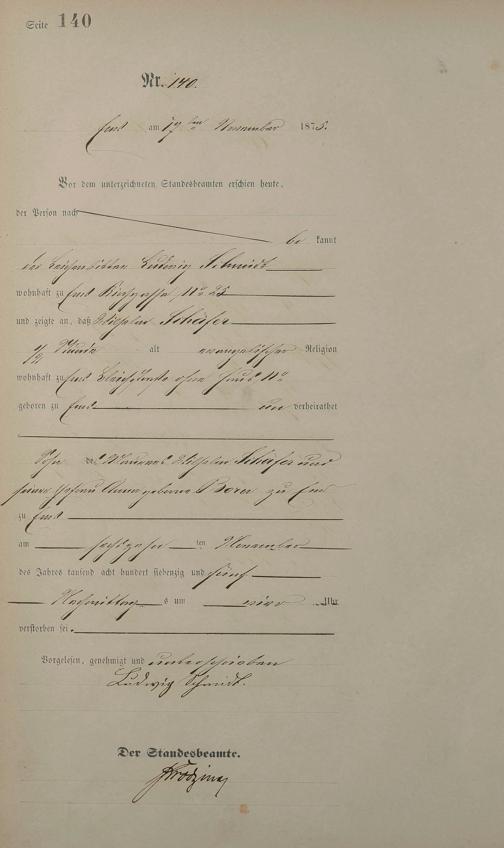 Seite 140
Nr. 140.
Ems am 17ten November 1875.
Vor dem unterzeichneten Standesbeamten erschien heute,
der Person nach
be kannt
der Leichenbitter Ludwig Schmidt
wohnhaft zu Ems Kirchgasse No 25
und zeigte an, daß Wilhelm Schäfer
1/2 Stunde alt evangelischer Religion
wohnhaft zu Ems ohne Haus No
geboren zu Ems un verheirathet
Sohn des Maurers Wilhelm Schäfer und
seiner Ehefrau Anna geborene Born zu Ems
zu Ems
am sechszehn ten November
des Jahres tausend acht hundert siebenzig und fünf
Nachmittag s um Uhr
verstorben sei.
Vorgelesen, genehmigt und unterschrieben
Ludwig Schmidt.
Der Standesbeamte.